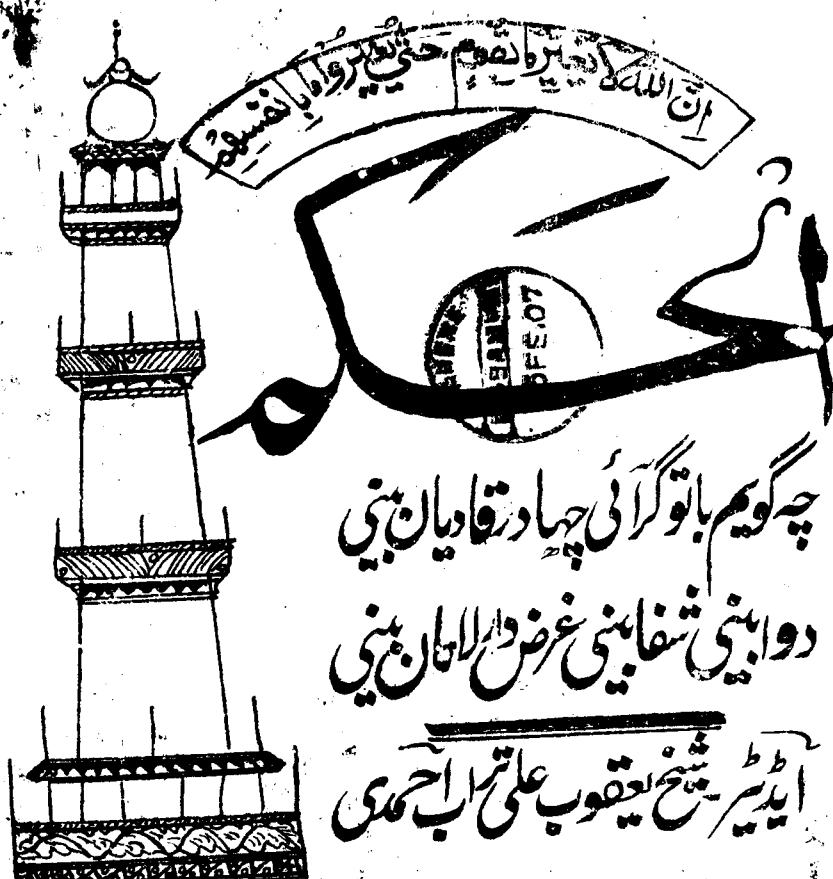 اِنَّ اللہَ لَا یُغَیِّرُ مَا بِقَوْمٍ حَتّٰی یُغَیِّرُوْا مَا بِاَنْفُسِهِمْ
الحکم
FE.07
چہ گویم با تو گر آئی چہا در قادیان بینی
دوا بینی شفا بینی غرض دارالامان بینی
ایڈیٹر شیخ یعقوب علی تراب احمدی